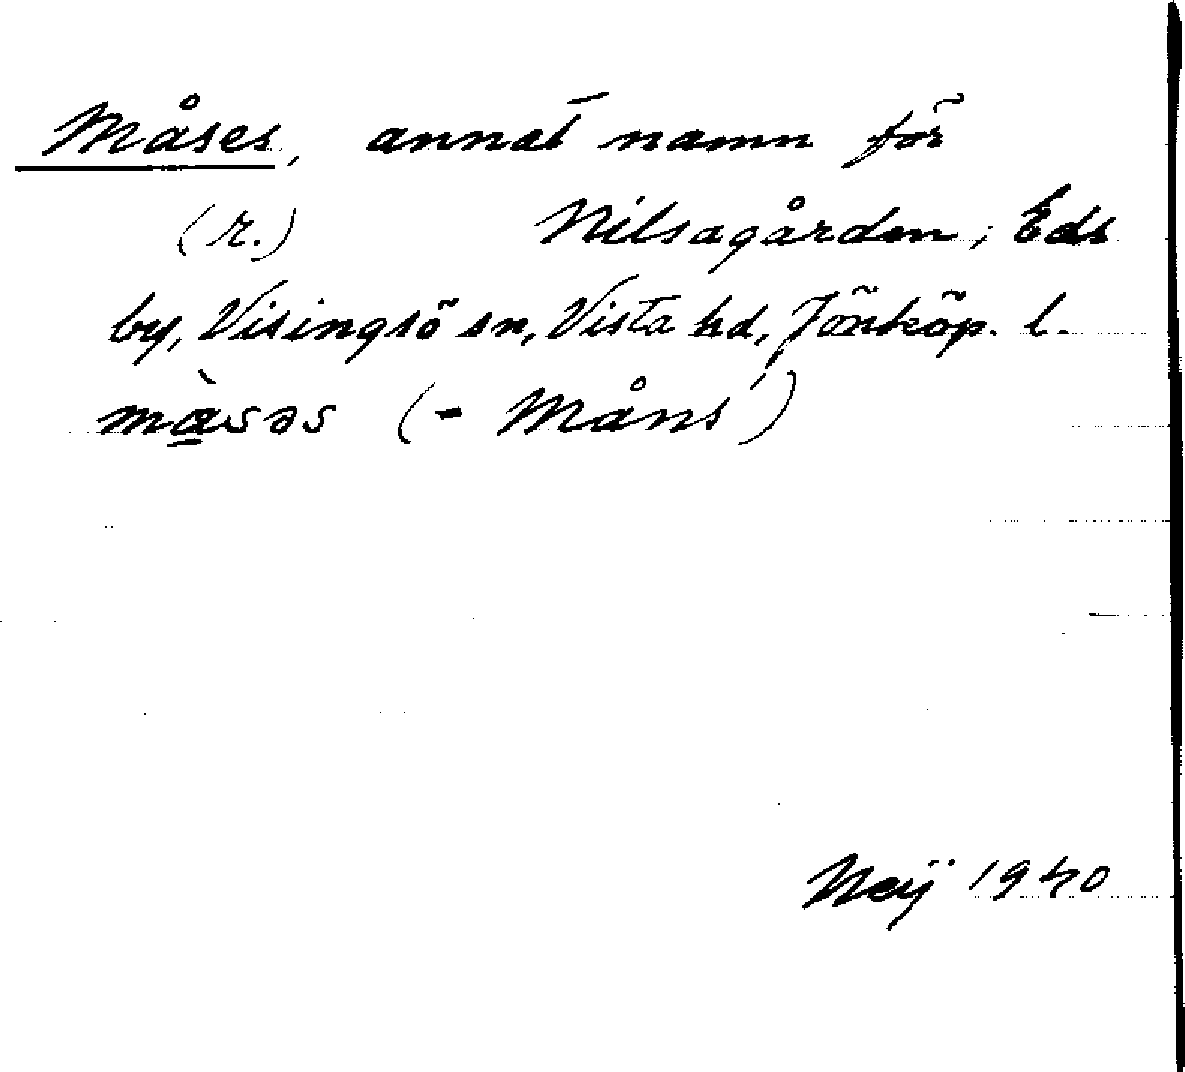 Måses, annat namn för
(r.) Nilsagården, Eds
by, Visingsö sn, Vista hd, Jönköp. l.
màsəs (- Måns)
1940